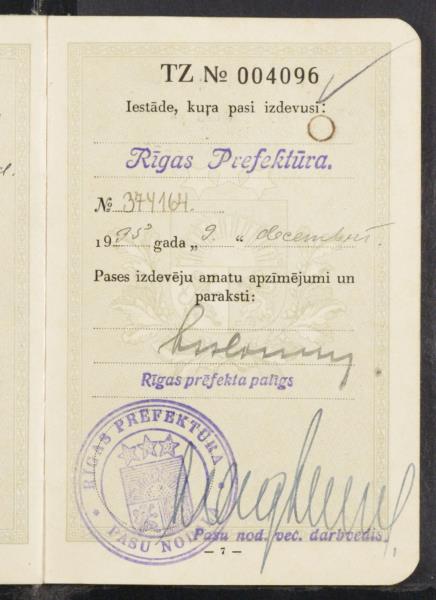 TZ № 004096
Iestāde, kuŗa pasi izdevusi:
Rīgas Prefektūra.
№ 374164.
1935 gada „ 9. “ decembrī.
Pases izdevēju amatu apzīmējumi un
paraksti:
Rīgas prēfekta palīgs
RĪGAS PREFEKTŪRA
PASU NOD.
Pasu nod. vec. darbvedis.
— 7 —